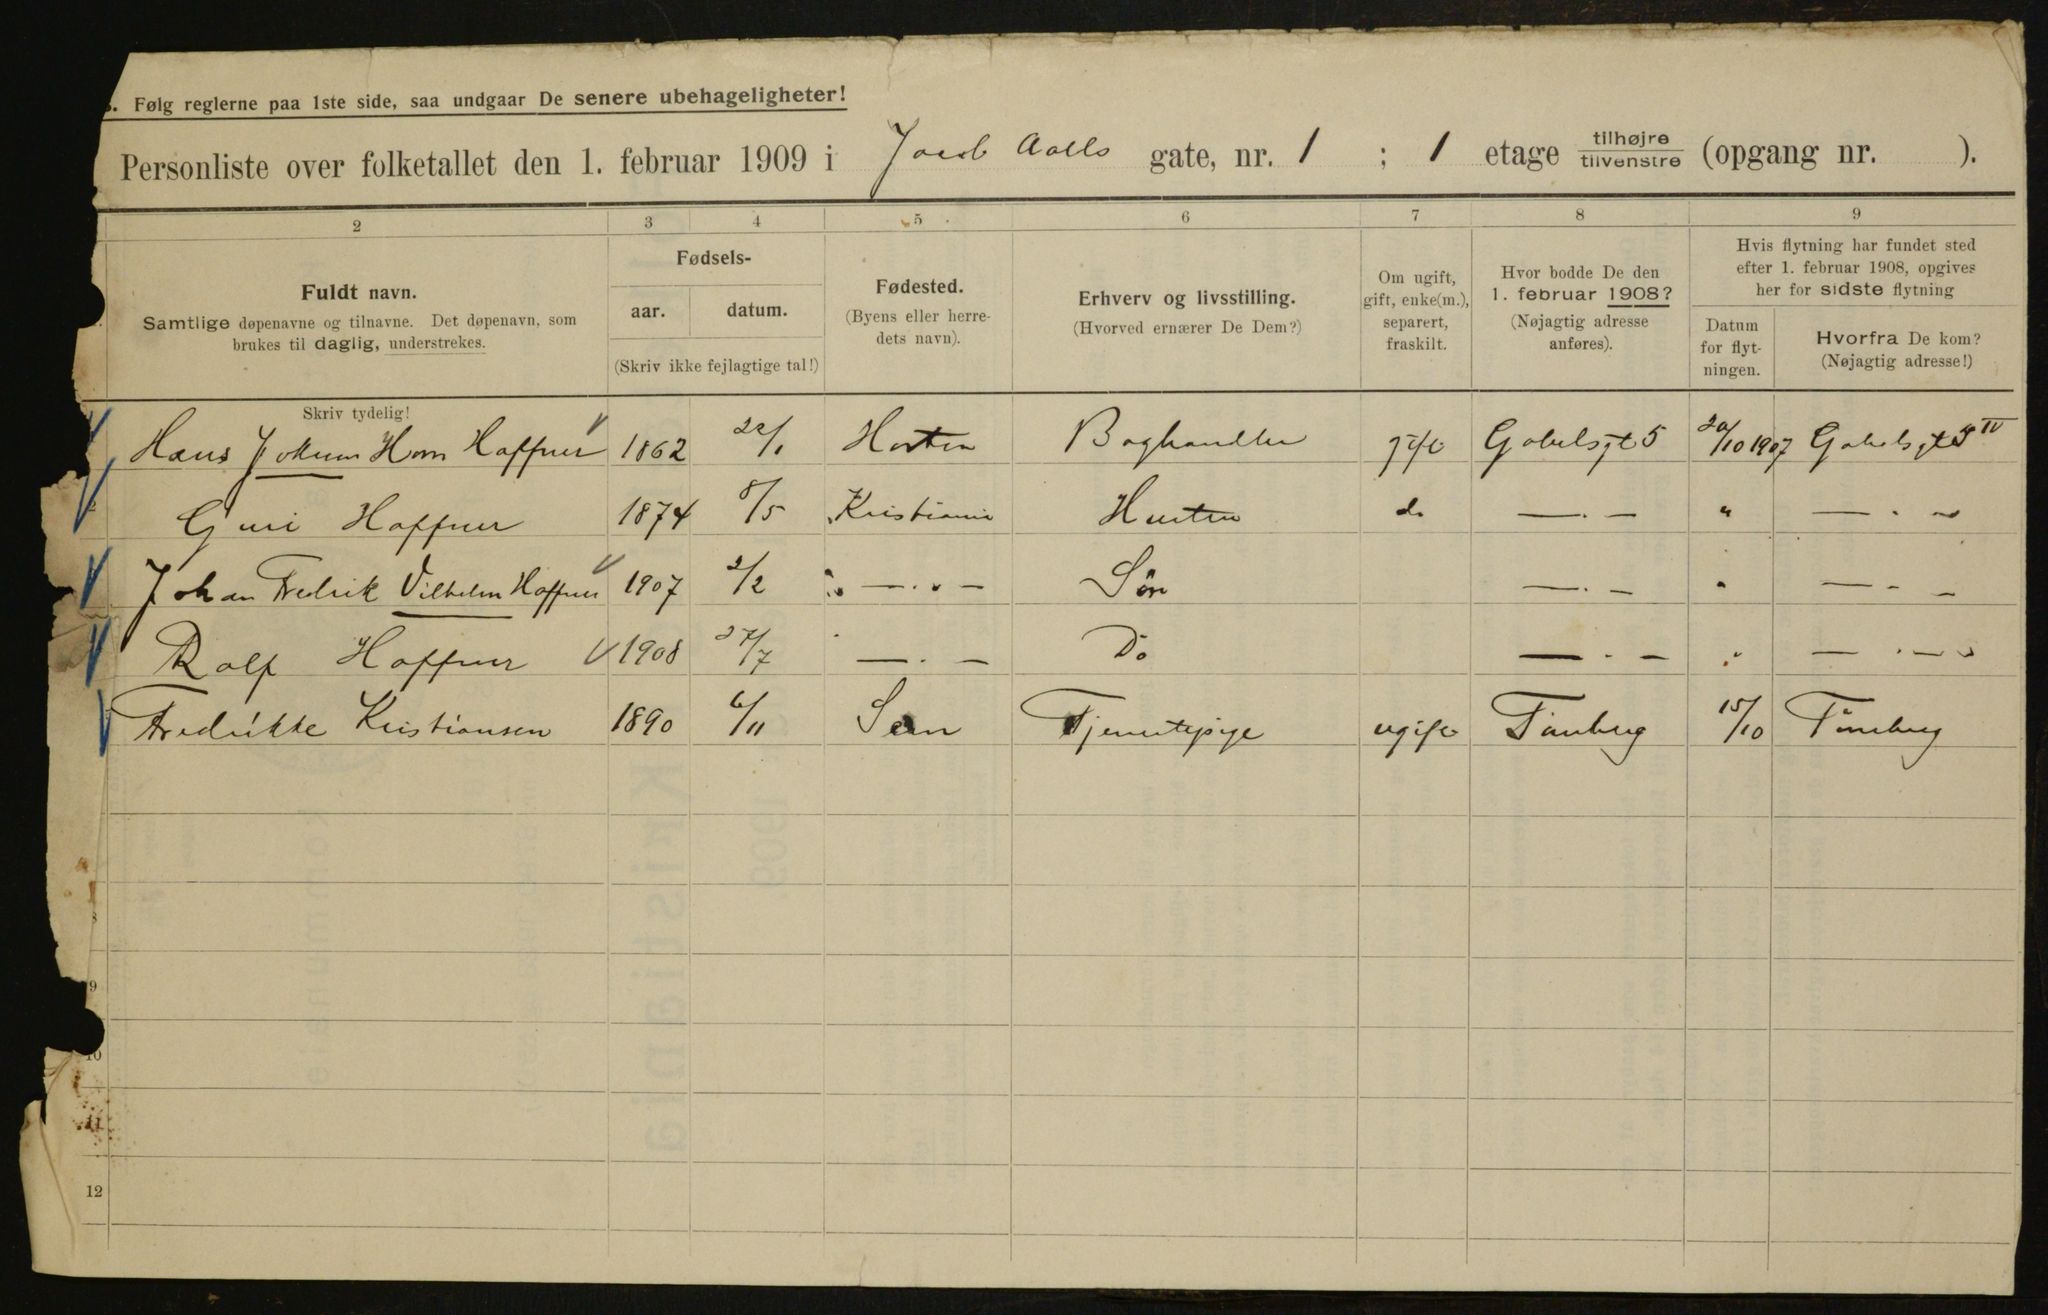 . Følg reglerne paa 1ste side, saa undgaar De senere ubehageligheter!
Personliste over folketallet den 1. februar 1909 i Jacob Aalls gate, nr. 1 ; 1 etage tilhøjre tilvenstre (opgang nr. ).
2 3 4 5 6 7 8 9
Fuldt navn.
Samtlige døpenavne og tilnavne. Det døpenavn, som
brukes til daglig, understrekes.
Skriv tydelig!
Fødsels-
aar. datum.
(Skriv ikke fejlagtige tal!)
Fødested.
(Byens eller herre-
dets navn).
Erhverv og livsstilling.
(Hvorved ernærer De Dem?)
Om ugift,
gift, enke(m.),
separert,
fraskilt.
Hvor bodde De den
1. februar 1908?
(Nøjagtig adresse
anføres).
Hvis flytning har fundet sted
efter 1. februar 1908, opgives
her for sidste flytning
Datum
for flyt-
ningen.
Hvorfra De kom?
(Nøjagtig adresse!)
Hans Jokum Horn Haffner 1862 22/1 Horten Boghandler gift Gabelsgt 5 20/10 1907 Gabelsgt 5 IV
2 Guri Haffner 1874 8/5 Kristiania Hustru do — . — " — . —
Johan Fredrik Vilhelm Haffner 1907 2/2 — . — Søn — . — " — - —
Rolf Haffner 1908 27/7 — . — Do — . — " — . —
Fredrikke Kristiansen 1890 6/11 Sem Tjenestepige ugift Tønsberg 15/10 Tønsberg
8
9
10
11
12